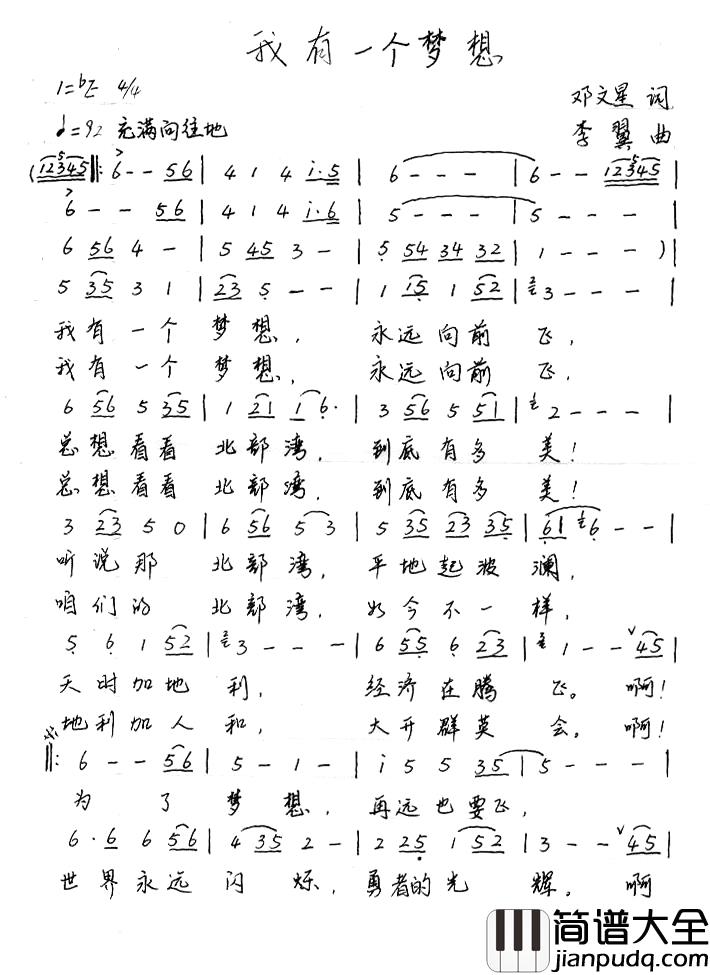 我有一个梦想
1=♭E 4/4
邓文星 词
♩=92 充满向往地
李翼 曲
(12345 ‖: 6 - - 56 | 4 1 4 i·5 | 6 - - - | 6 - - 12345 |
6 - - 56 | 4 1 4 i·6 | 5 - - - | 5 - - - |
6 56 4 - | 5 45 3 - | 5 54 34 32 | 1 - - - )|
5 35 3 1 | 23 5 - - | 1 15 1 52 | 3 - - - |
我有一个梦想，永远向前飞，
我有一个梦想，永远向前飞，
6 56 5 35 | 1 21 1 6· | 3 56 5 51 | 2 - - - |
总想看看北部湾，到底有多美！
总想看看北部湾，到底有多美！
3 23 5 0 | 6 56 5 3 | 5 35 23 35 | 61 6 - - |
听说那北部湾，平地起波澜，
咱们的北部湾，如今不一样，
5 6 1 52 | 3 - - - | 6 55 6 23 | 1 - - 45 |
天时加地利，经济在腾飞。啊！
地利加人和，大开群英会。啊！
‖: 6 - - 56 | 5 - 1 - | i 5 5 35 | 5 - - - |
为了梦想，再远也要飞，
6· 6 6 56 | 4 35 2 - | 2 25 1 52 | 3 - - 45 |
世界永远闪烁，勇者的光辉。啊
简谱大全
jianpudq.com